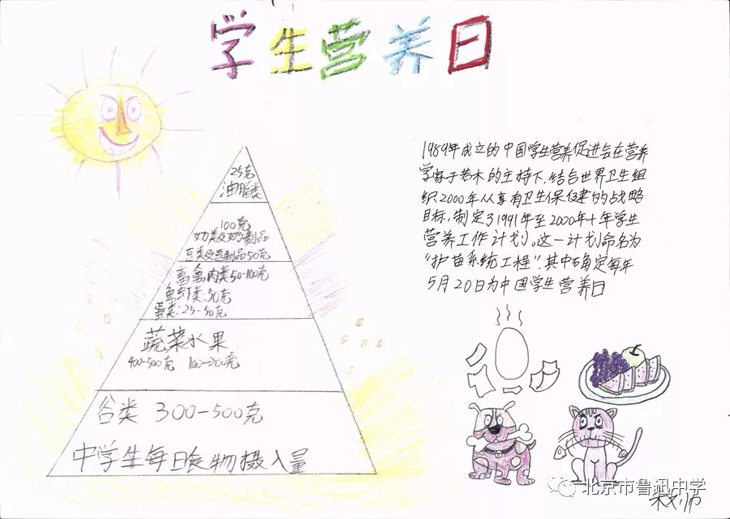 学生营养日
25克
油脂类
100克
奶类及奶制品
豆类及豆制品50克
畜禽肉类50-100克
鱼虾类:50克
蛋类:25-50克
蔬菜水果
400-500克 100-200克
谷类 300-500克
中学生每日食物摄入量
1989年成立的中国学生营养促进会在营养
学家于若木的主持下,结合世界卫生组
织2000年人人享有卫生保健的战略
目标,制定了1991年至2000年十年学生
营养工作计划。这一计划命名为
“护苗系统工程”.其中确定每年
5月20日为中国学生营养日
北京市鲁迅中学